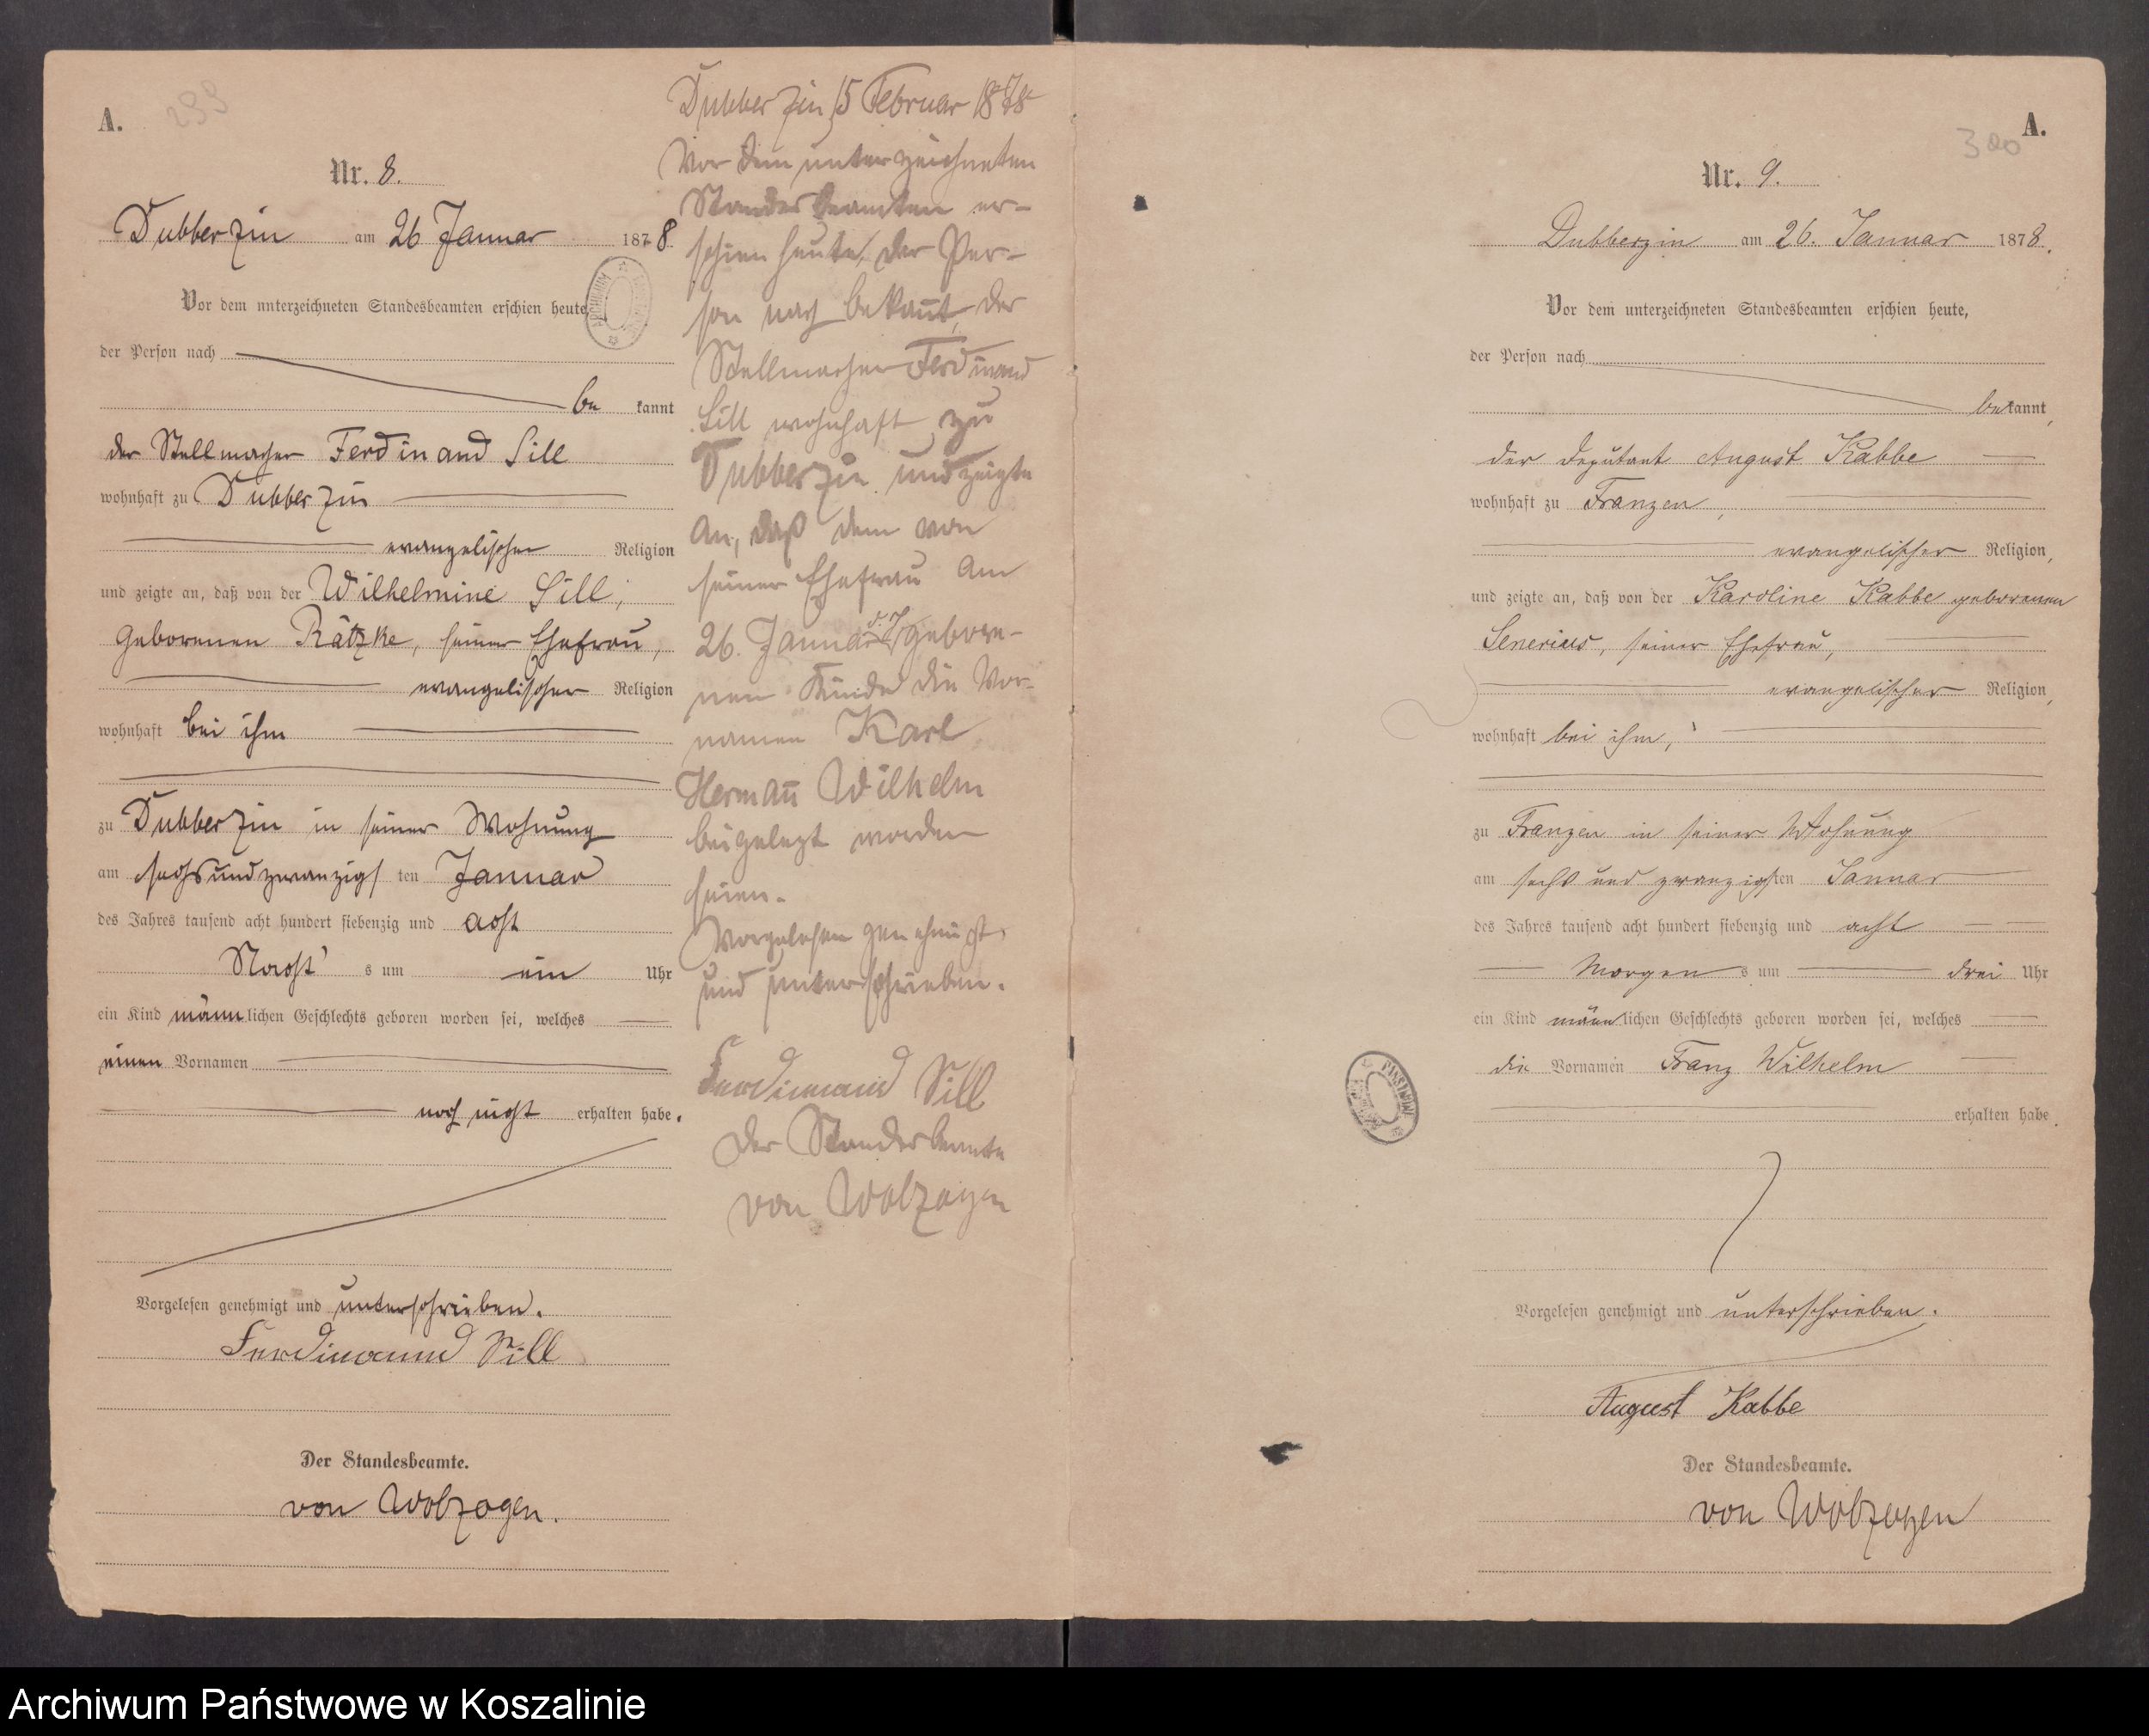 A.
299
Nr. 8.
Dubberzin am 26 Januar 1878.
Vor dem unterzeichneten Standesbeamten erschien heute,
der Person nach
be kannt
der Stellmacher Ferdinand Sill
wohnhaft zu Dubberzin
evangelischer Religion
und zeigte an, daß von der Wilhelmine Sill,
geborenen Rätzke, seiner Ehefrau,
evangelischer Religion
wohnhaft bei ihm
zu Dubberzin in seiner Wohnung
am sechsundzwanzigs ten Januar
des Jahres tausend acht hundert siebenzig und acht
Nacht s um ein Uhr
ein Kind männlichen Geschlechts geboren worden sei, welches
einen Vornamen
noch nicht erhalten habe.
Vorgelesen genehmigt und unterschrieben.
Ferdinannd Sill
Der Standesbeamte.
von Wolzogen.
Dubberzin 15 Februar 1878
Vor dem unterzeichneten
Standesbeamten er-
schien heute, der Per-
son nach bekannt, der
Stellmacher Ferdinand
Sill wohnhaft zu
Dubberzin und zeigte
an, daß dem von
seiner Ehefrau am
26. Januar d. J. gebore-
nen Kinde die Vor-
namen Karl
Hermann Wilhelm
beigelegt worden
seien.
Vorgelesen genehmigt
und unterschrieben.
Ferdinannd Sill
Der Standesbeamte
von Wolzogen
A.
300
Nr. 9.
Dubberzin am 26. Januar 1878.
Vor dem unterzeichneten Standesbeamten erschien heute,
der Person nach
bekannt,
der Deputant August Kabbe
wohnhaft zu Franzen,
evangelischer Religion,
und zeigte an, daß von der Karoline Kabbe geborenen
Senerius, seiner Ehefrau,
evangelischer Religion,
wohnhaft bei ihm,
zu Franzen in seiner Wohnung
am sechs und zwanzigsten Januar
des Jahres tausend acht hundert siebenzig und acht
Morgen s um drei Uhr
ein Kind männlichen Geschlechts geboren worden sei, welches
die Vornamen Franz Wilhelm
erhalten habe.
Vorgelesen genehmigt und unterschrieben.
August Kabbe
Der Standesbeamte.
von Wolzogen
Archiwum Państwowe w Koszalinie